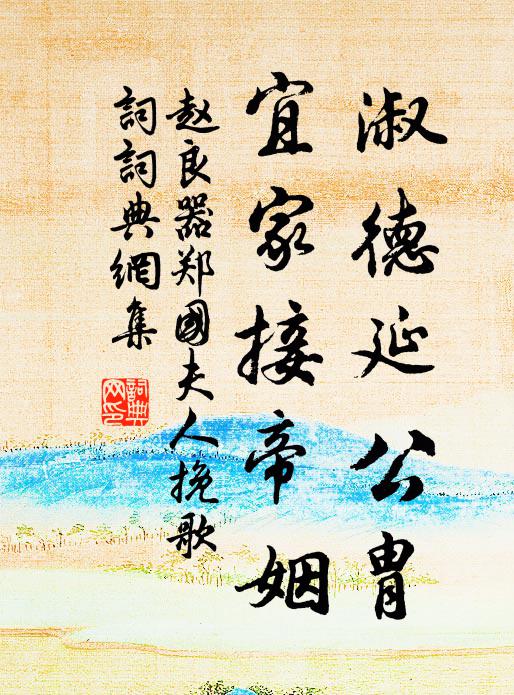 淑德延公胄
宜家接帝姻
赵良器郑國夫人挽歌
詞詞典網集
詞典網印